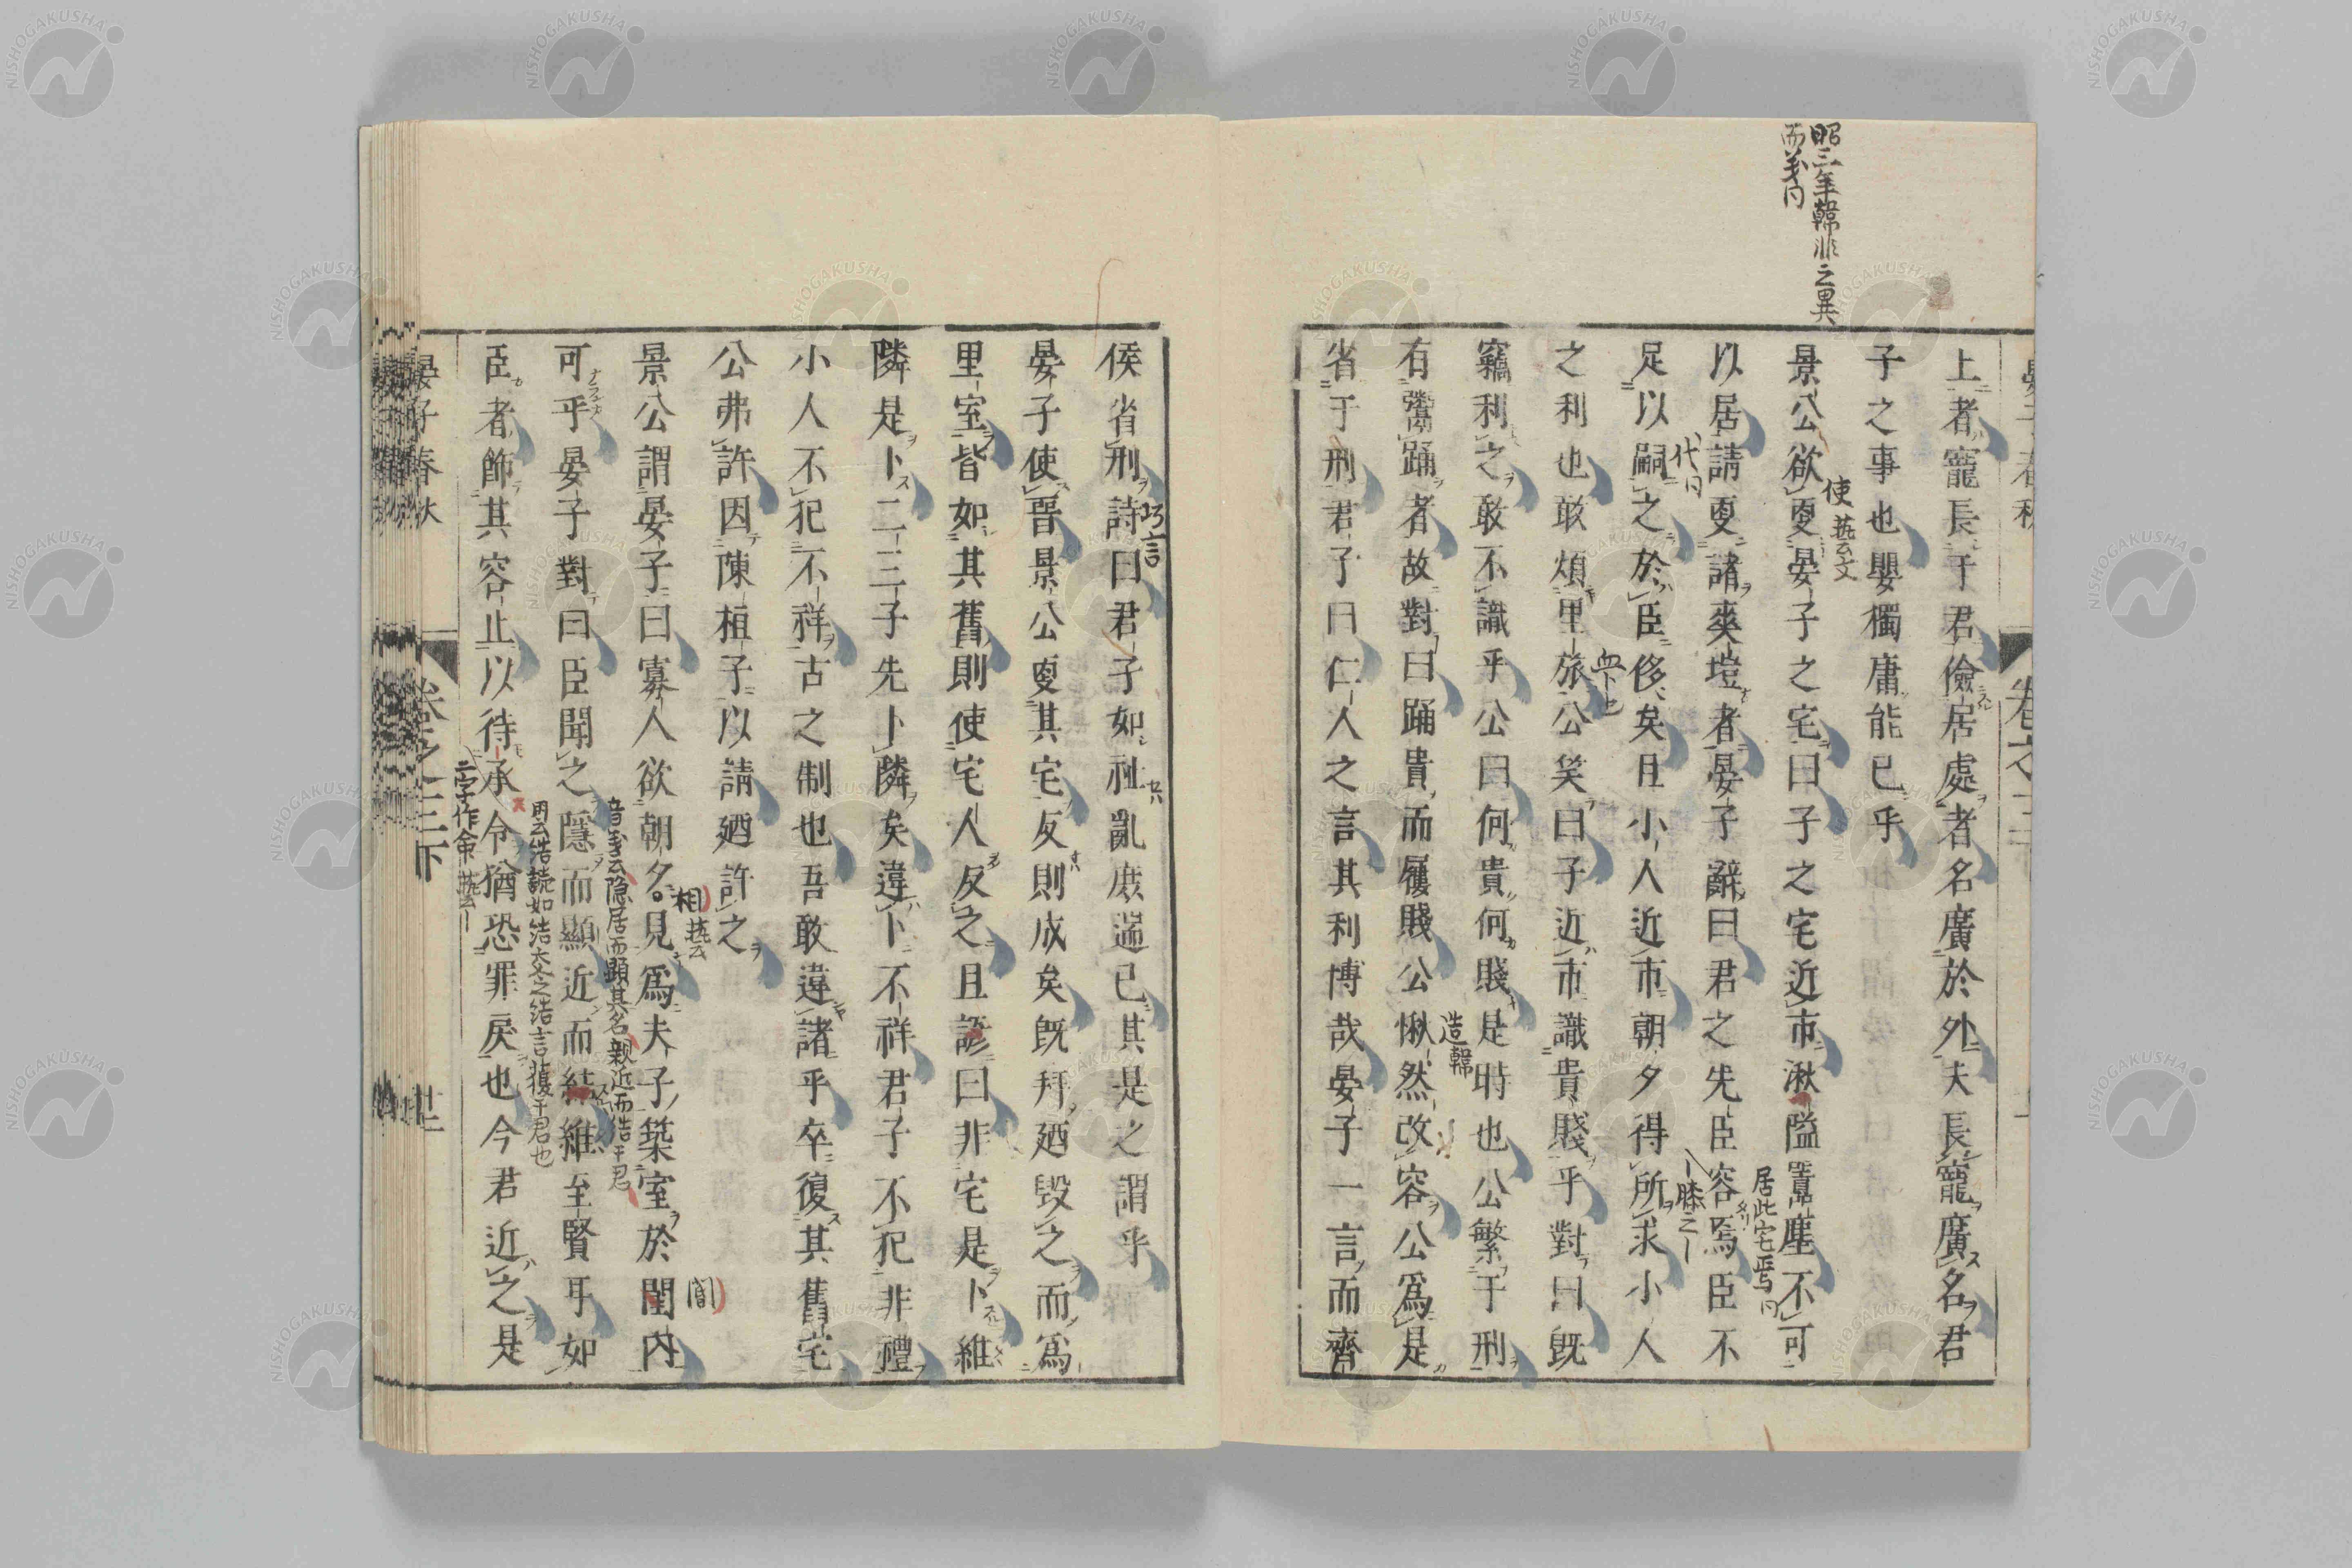 昭三年韓非之異
而義同
上者寵長于君儉居處者名廣於外夫長寵廣名君
子之事也嬰獨庸能已乎
景公欲更晏子之宅曰子之宅近市湫隘囂塵不可
使 藝文
居此宅焉同
以居請更諸爽塏者晏子辭曰君之先臣容焉臣不
足以嗣之於臣侈矣且小人近市朝夕得所求小人
之利也敢煩里旅公笑曰子近市識貴賤乎對曰既
竊利之敢不識乎公曰何貴何賤是時也公繁于刑
有鬻踊者故對曰踊貴而屨賤公愀然改容公爲是
造韓
省于刑君子曰仁人之言其利博哉晏子一言而齊
侯省刑詩曰君子如祉亂庶遄已其是之謂乎
巧言
晏子使晉景公更其宅反則成矣既拜廼毀之而爲
里室皆如其舊則使宅人反之且諺曰非宅是卜維
隣是卜二三子先卜隣矣違卜不祥君子不犯非禮
小人不犯不祥古之制也吾敢違諸乎卒復其舊宅
公弗許因陳桓子以請廼許之
景公謂晏子曰寡人欲朝夕見爲夫子築室於閨内
相 藝文
閤
可乎晏子對曰臣聞之隱而顯近而結維至賢耳如
音義云隱居而顯其名親近而結于君
臣者飾其容止以待承令猶恐罪戾也今君近之是
二字作命
晏子春秋
卷之三下
廿二